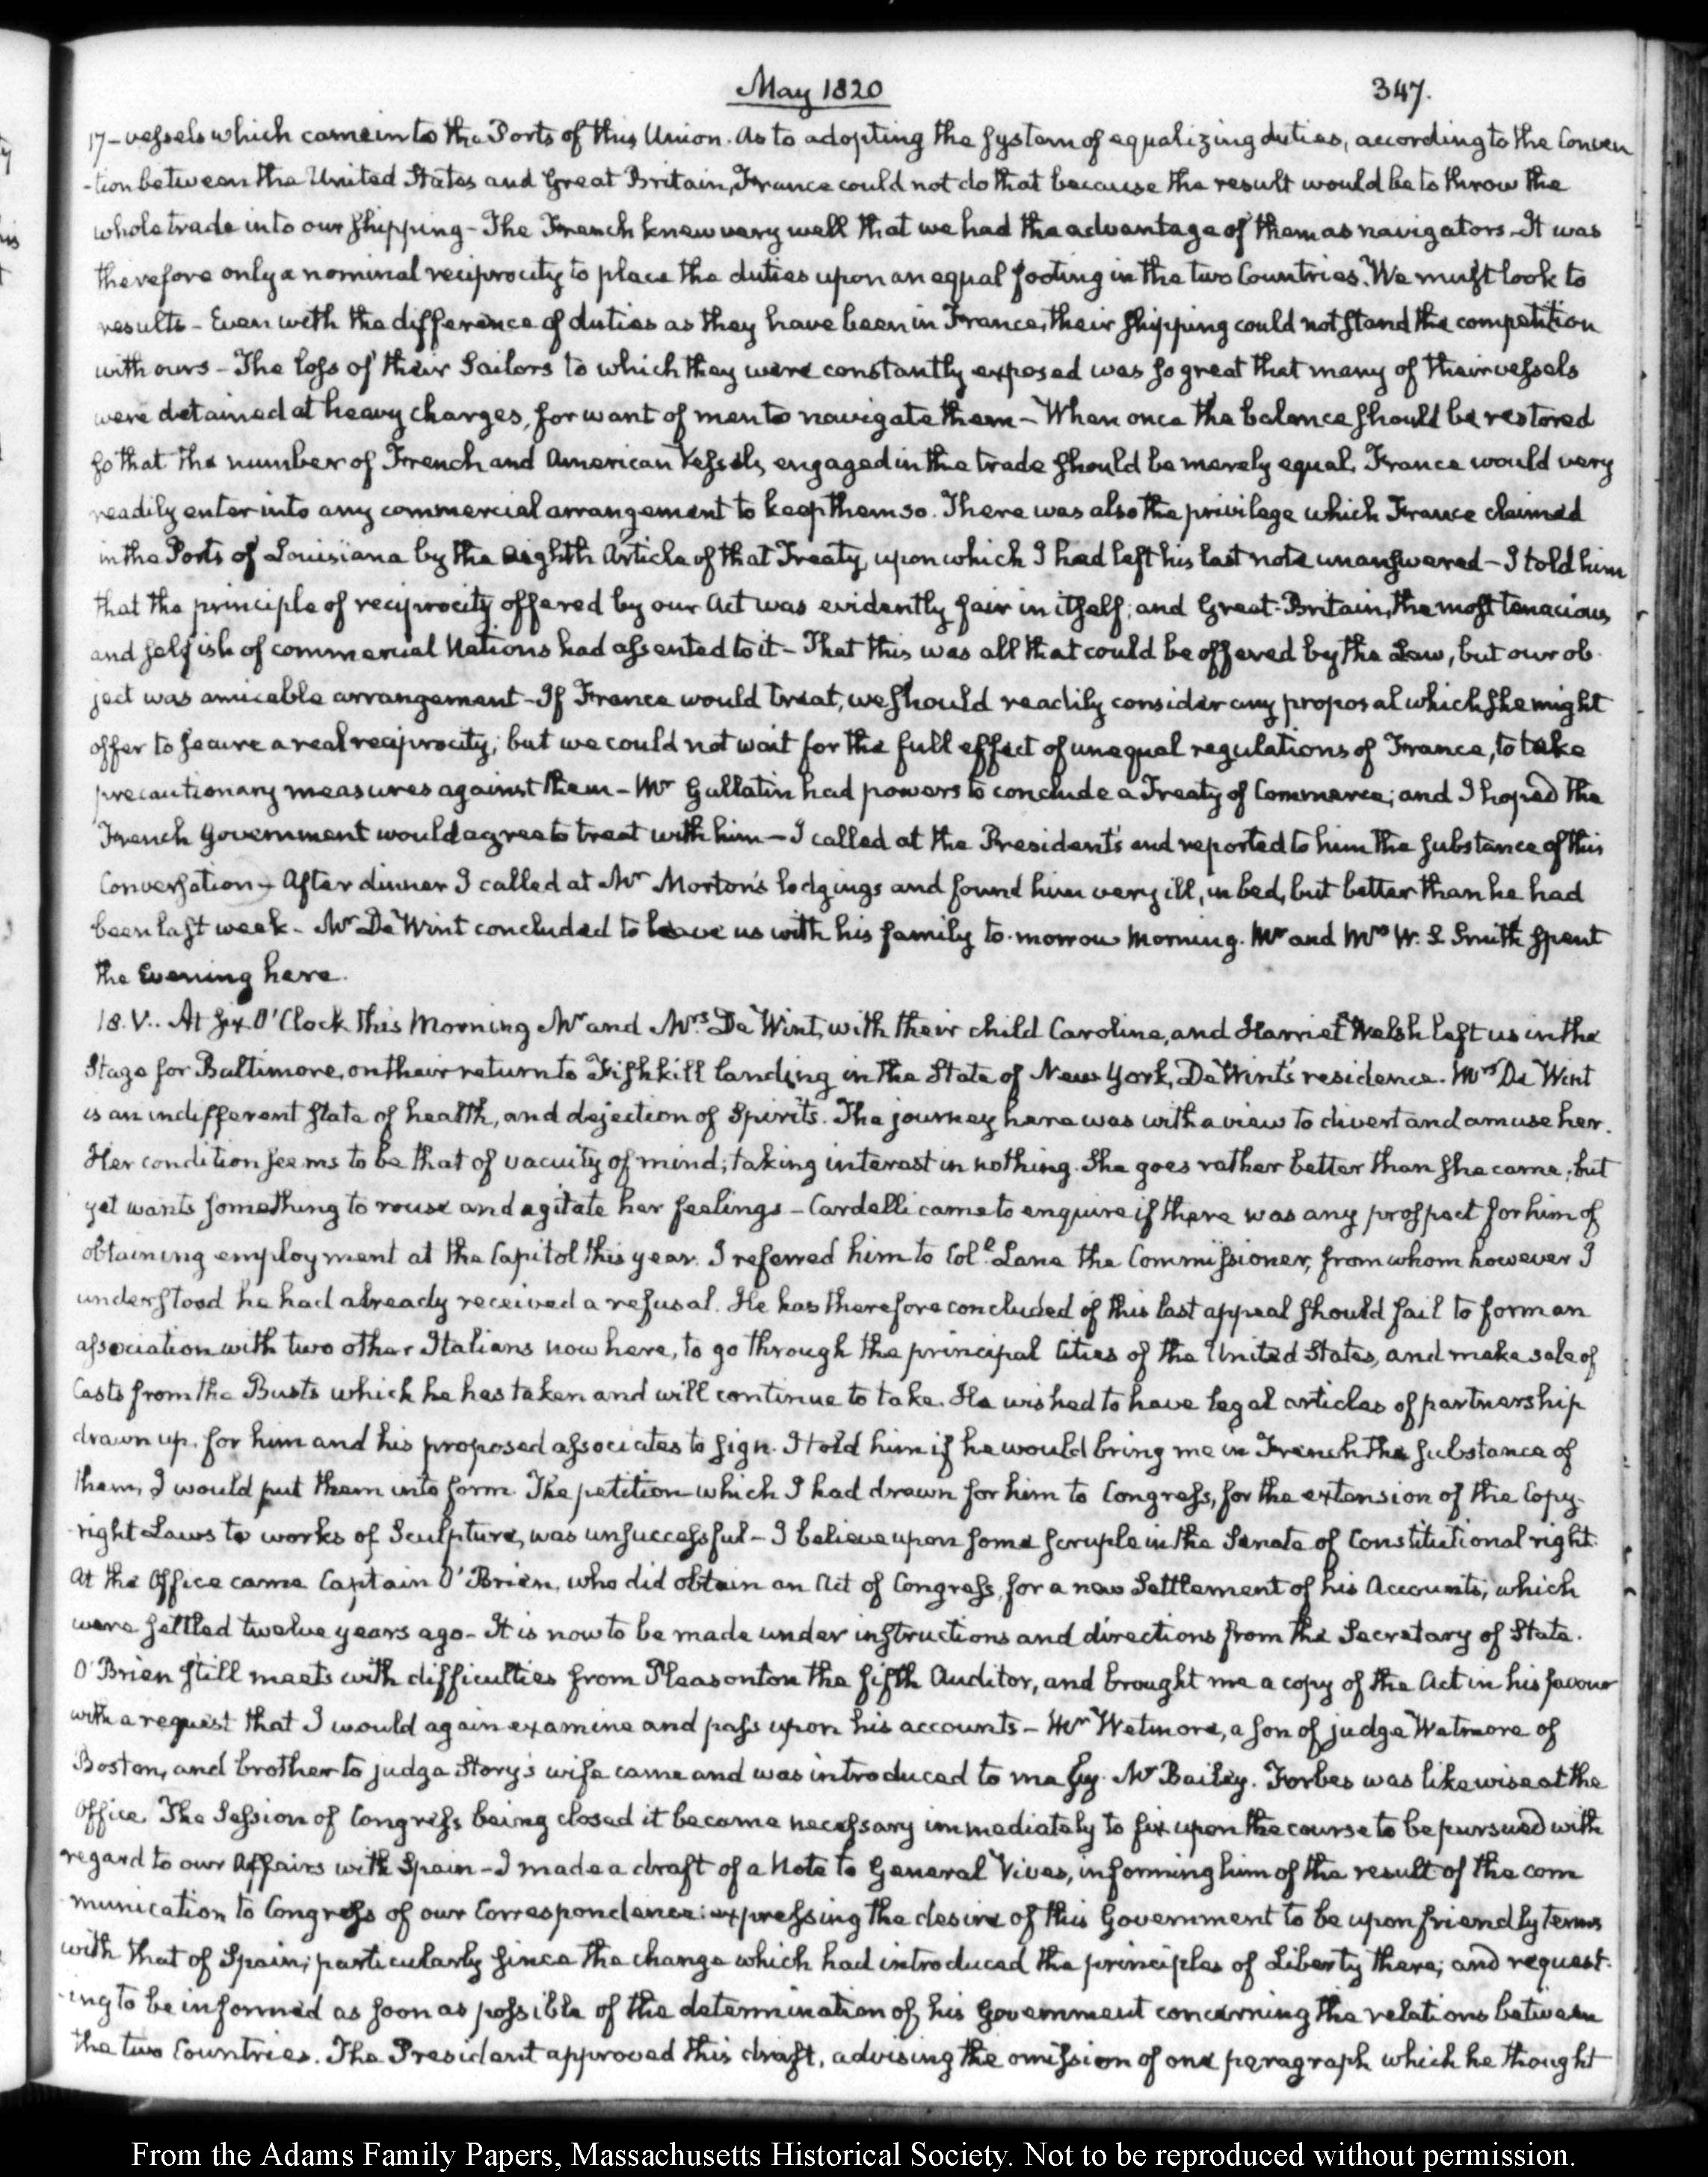 May 1820
347.
17 - vessels which came into the Ports of this Union. As to adopting the system of equalizing duties, according to the Conven
-tion between the United States and Great Britain, France could not do that because the result would be to throw the
whole trade into our shipping - The French knew very well that we had the advantage of them as navigators - It was
therefore only a nominal reciprocity to place the duties upon an equal footing in the two Countries. We must look to
results - Even with the difference of duties as they have been in France, their shipping could not stand the competition
with ours - The loss of their Sailors to which they were constantly exposed was so great that many of their vessels
were detained at heavy charges, for want of men to navigate them - When once the balance should be restored
so that the number of French and American Vessels, engaged in the trade should be merely equal, France would very
readily enter into any commercial arrangement to keep them so. There was also the privilege which France claimed
in the Ports of Louisiana by the eighth Article of that Treaty, upon which I had left his last note unanswered - I told him
that the principle of reciprocity offered by our Act was evidently fair in itself; and Great-Britain, the most tenacious
and selfish of commercial Nations had assented to it - That this was all that could be offered by the Law, but our ob-
ject was amicable arrangement - If France would treat, we should readily consider any proposal which she might
offer to secure a real reciprocity; but we could not wait for the full effect of unequal regulations of France, to take
precautionary measures against them - Mr Gallatin had powers to conclude a Treaty of Commerce; and I hoped the
French Government would agree to treat with him - I called at the President's and reported to him the substance of this
Conversation - After dinner I called at Mr Morton's lodgings and found him very ill, in bed, but better than he had
been last week - Mr De Wint concluded to leave us with his family to-morrow Morning. Mr and Mrs W. S. Smith spent
the Evening here.
18. V.. At six O'Clock this Morning Mr and Mrs De Wint, with their child Caroline, and Harriet Welsh left us in the
Stage for Baltimore, on their return to Fishkill landing in the State of New York, De Wint's residence. Mrs De Wint
is an indifferent state of health, and dejection of Spirits. The journey here was with a view to divert and amuse her.
Her condition seems to be that of vacuity of mind; taking interest in nothing. She goes rather better than she came; but
yet wants something to rouse and agitate her feelings - Cardelli came to enquire if there was any prospect for him of
obtaining employment at the Capitol this year. I referred him to Coll. Lane the Commissioner, from whom however I
understood he had already received a refusal. He has therefore concluded if this last appeal should fail to form an
association with two other Italians now here, to go through the principal Cities of the United States, and make sale of
Casts from the Busts which he has taken and will continue to take. He wished to have legal articles of partnership
drawn up, for him and his proposed associates to sign. I told him if he would bring me in French the substance of
them, I would put them into form. The petition which I had drawn for him to Congress, for the extension of the Copy-
right Laws to works of Sculpture, was unsuccessful - I believe upon some scruple in the Senate of Constitutional right.
At the Office came Captain O'Brien, who did obtain an Act of Congress, for a new Settlement of his Accounts; which
were settled twelve years ago - It is now to be made under instructions and directions from the Secretary of State.
O'Brien still meets with difficulties from Pleasonton the fifth Auditor, and brought me a copy of the Act in his favour
with a request that I would again examine and pass upon his accounts - Mr Wetmore, a son of judge Wetmore of
Boston, and brother to judge Story's wife came and was introduced to me by Mr Bailey. Forbes was likewise at the
Office. The Session of Congress being closed it became necessary immediately to fix upon the course to be pursued with
regard to our Affairs with Spain - I made a draft of a Note to General Vives, informing him of the result of the com
munication to Congress of our Correspondence: expressing the desire of this Government to be upon friendly terms
with that of Spain; particularly since the change which had introduced the principles of Liberty there; and request-
-ing to be informed as soon as possible of the determination of his Government concerning the relations between
the two Countries. The President approved this draft, advising the omission of one paragraph which he thought
From the Adams Family Papers, Massachusetts Historical Society. Not to be reproduced without permission.